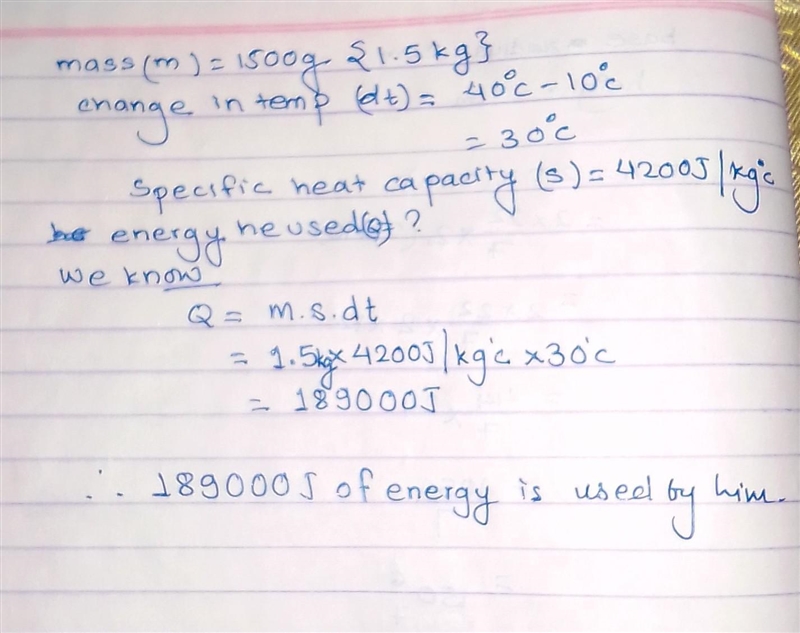 mass(m) = 1500g {1.5 kg}
change in temp (dt) = 40°c - 10°c
= 30°c
Specific heat capacity (s) = 4200J/kg°c
energy he used(Q)?
we know
Q = m.s.dt
= 1.5kg×4200J/kg°c ×30°c
= 189000J
∴ 189000J of energy is used by him.